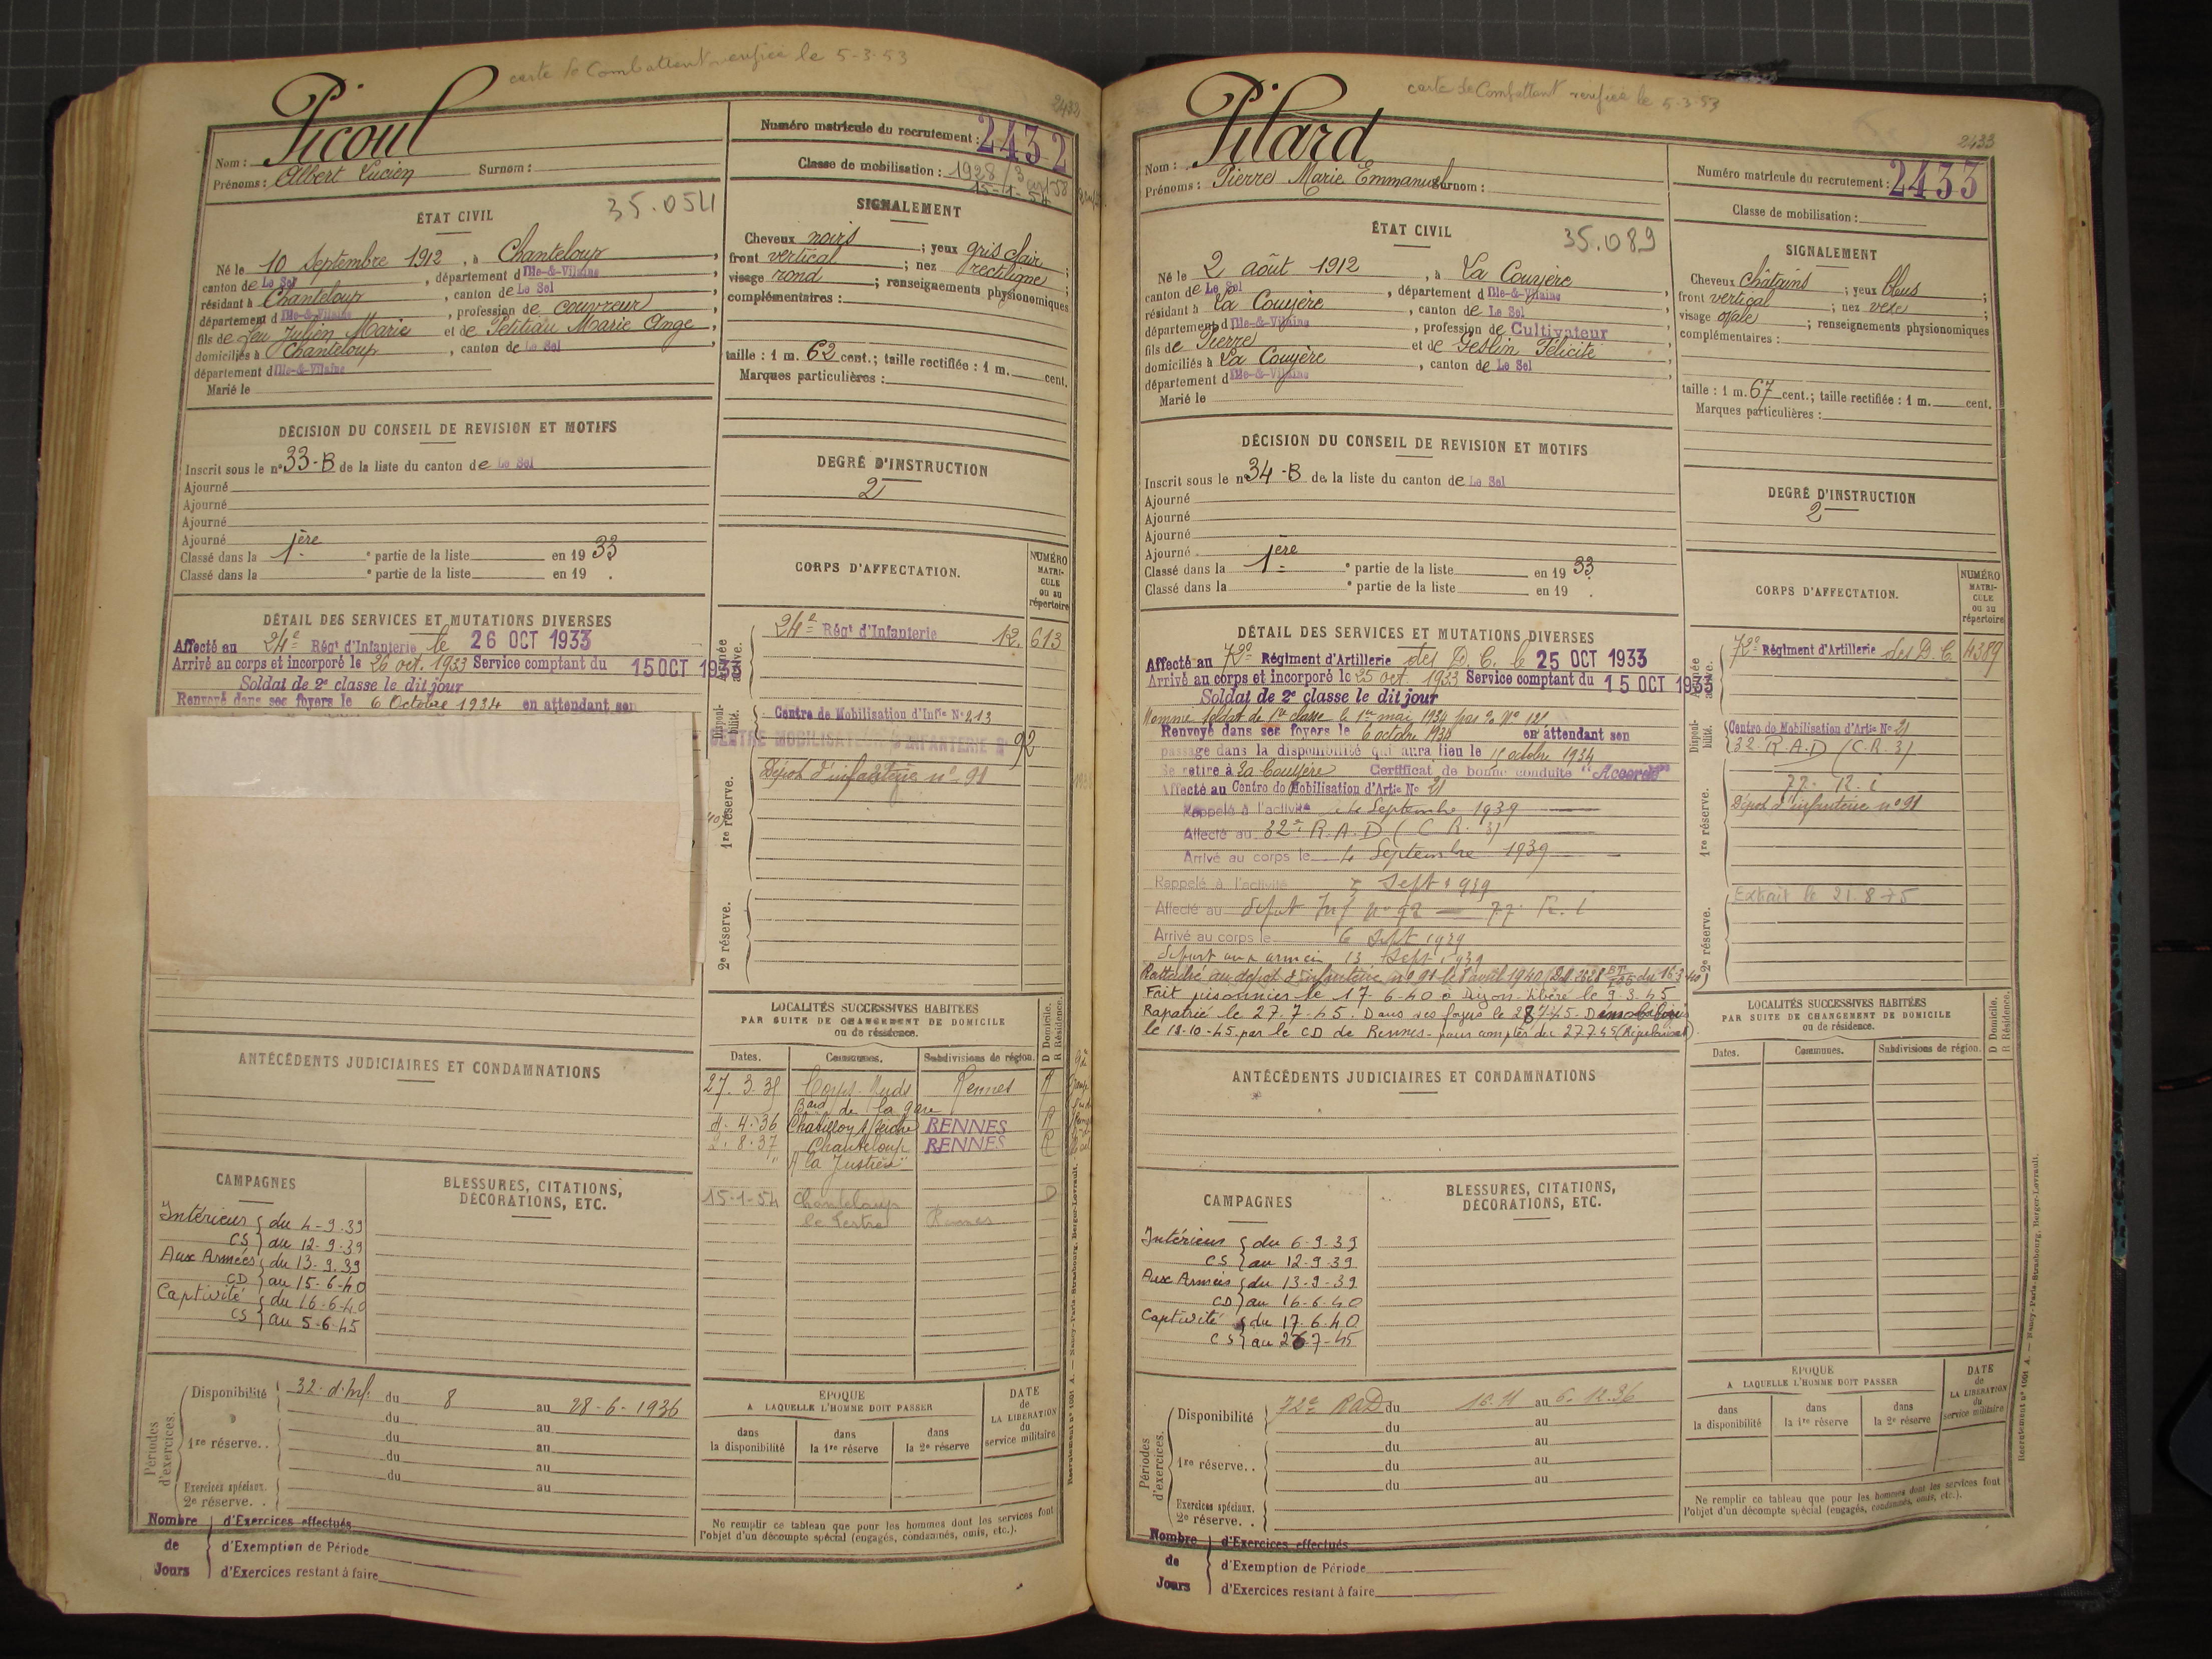 carte de Combattant verifiée le 5-3-53
Picoul
2432
Nom :
Prénoms : Albert Lucien Surnom :
Numéro matricule du recrutement : 2432
Classe de mobilisation : 1928/3
15-1-54
ÉTAT CIVIL
35.054
Né le 10 Septembre 1912, à Chanteloup,
canton de Le Sel, département d'Ille-&-Vilaine,
résidant à Chanteloup, canton de Le Sel,
département d'Ille-&-Vilaine, profession de couvreur,
fils de feu Julien Marie et de Petitdu Marie Ange,
domiciliés à Chanteloup, canton de Le Sel,
département d'Ille-&-Vilaine
Marié le
SIGNALEMENT
Cheveux noirs ; yeux gris clair ;
front vertical ; nez rectiligne ;
visage rond ; renseignements physionomiques
complémentaires :
taille : 1 m. 62 cent.; taille rectifiée : 1 m. cent.
Marques particulières :
DÉCISION DU CONSEIL DE REVISION ET MOTIFS
Inscrit sous le n° 33-B de la liste du canton de Le Sel
Ajourné
Ajourné
Ajourné
Ajourné
Classé dans la 1ère partie de la liste en 19 33
Classé dans la e partie de la liste en 19 .
DEGRÉ D'INSTRUCTION
2
DÉTAIL DES SERVICES ET MUTATIONS DIVERSES
Affecté au 24e Régt d'Infanterie le 26 OCT 1933
Arrivé au corps et incorporé le 26 oct. 1933 Service comptant du 15 OCT 1933
Soldat de 2e classe le dit jour
Renvoyé dans ses foyers le 6 Octobre 1934 en attendant son
CORPS D'AFFECTATION.
NUMÉRO MATRICULE ou au répertoire
24e Régt d'Infanterie 12. 613
Disponibilité.
Centre de Mobilisation d'Infie N° 213
CENTRE MOBILISATEUR D'INFANTERIE N° 92
1re réserve.
Dépot d'infanterie n° 91
2e réserve.
ANTÉCÉDENTS JUDICIAIRES ET CONDAMNATIONS
LOCALITÉS SUCCESSIVES HABITÉES
PAR SUITE DE CHANGEMENT DE DOMICILE
ou de résidence.
D Domicile.
R Résidence.
Dates. Communes. Subdivisions de région.
27. 3. 35 Corps-Nuds Rennes R
Bard de la gare
4. 36 Chatillon s/ Seiche RENNES R
8. 37 Chanteloup RENNES R
" "A la Justière"
15-1-54 Chanteloup D
le Tertre Rennes
CAMPAGNES
Intérieur du 4-9-39
CS au 12-9-39
Aux Armées du 13-9-39
CD au 15-6-40
Captivité du 16-6-40
CS au 5-6-45
BLESSURES, CITATIONS,
DÉCORATIONS, ETC.
Périodes d'exercices.
Disponibilité 32e d'Inf. du 8 au 28-6-1936
du au
1re réserve. . du au
du au
du au
Exercices spéciaux. au
2e réserve. .
ÉPOQUE
A LAQUELLE L'HOMME DOIT PASSER
dans la disponibilité
dans la 1re réserve
dans la 2e réserve
DATE de LA LIBÉRATION du service militaire
Ne remplir ce tableau que pour les hommes dont les services font
l'objet d'un décompte spécial (engagés, condamnés, omis, etc.).
Nombre de Jours
d'Exercices effectués
d'Exemption de Période
d'Exercices restant à faire
Recrutement n° 1001 A. — Nancy-Paris-Strasbourg, Berger-Levrault.
carte de Combattant verifiée le 5-3-53
Pilard
2433
Nom :
Prénoms : Pierre Marie Emmanuel Surnom :
Numéro matricule du recrutement : 2433
Classe de mobilisation :
ÉTAT CIVIL
35.089
Né le 2 août 1912, à La Couyère,
canton de Le Sel, département d'Ille-&-Vilaine,
résidant à La Couyère, canton de Le Sel,
département d'Ille-&-Vilaine, profession de Cultivateur,
fils de Pierre et de Geslin Félicité,
domiciliés à La Couyère, canton de Le Sel,
département d'Ille-&-Vilaine
Marié le
SIGNALEMENT
Cheveux châtains ; yeux bleus ;
front vertical ; nez vexe ;
visage ovale ; renseignements physionomiques
complémentaires :
taille : 1 m. 67 cent.; taille rectifiée : 1 m. cent.
Marques particulières :
DÉCISION DU CONSEIL DE REVISION ET MOTIFS
Inscrit sous le n° 34-B de la liste du canton de Le Sel
Ajourné
Ajourné
Ajourné
Ajourné
Classé dans la 1ère partie de la liste en 19 33
Classé dans la e partie de la liste en 19 .
DEGRÉ D'INSTRUCTION
2
DÉTAIL DES SERVICES ET MUTATIONS DIVERSES
Affecté au 72e Régiment d'Artillerie des D. C. le 25 OCT 1933
Arrivé au corps et incorporé le 25 oct. 1933 Service comptant du 15 OCT 1933
Soldat de 2e classe le dit jour
Nommé soldat de 1re classe le 1er mai 1934 N° 121
Renvoyé dans ses foyers le 6 octobre 1934 en attendant son
passage dans la disponibilité qui aura lieu le 15 octobre 1934
Se retire à La Couyère Certificat de bonne conduite "Accordé"
Affecté au Centre de Mobilisation d'Artie N° 21
Rappelé à l'activité le 4 Septembre 1939
Affecté au 32e R.A.D (C.R. 3)
Arrivé au corps le 4 Septembre 1939
Rappelé à l'activité 5 Sept 1939
Affecté au depot Inf n° 92 — 77e R.i
Arrivé au corps le 6 Sept 1939
depart aux armées 13 Sept 1939
Rattaché au depot d'infanterie n° 91 le 1 avril 1940 du 16-3-40
Fait prisonnier le 17-6-40 à Dijon. Libéré le 9-3-45
Rapatrié le 27.7.45. Dans ses foyers le 28-7-45. Démobilisé
le 18-10-45 par le CD de Rennes. pour compter du 27.7.45 (Rapatriement)
CORPS D'AFFECTATION.
NUMÉRO MATRICULE ou au répertoire
72e Régiment d'Artillerie des D. C 4389
Disponibilité.
Centre de Mobilisation d'Artie N° 21
32 R.A.D (C.R. 3)
77e R.i
1re réserve.
Dépot d'infanterie n° 91
Extrait le 21.8.75
2e réserve.
ANTÉCÉDENTS JUDICIAIRES ET CONDAMNATIONS
LOCALITÉS SUCCESSIVES HABITÉES
PAR SUITE DE CHANGEMENT DE DOMICILE
ou de résidence.
D Domicile.
R Résidence.
Dates. Communes. Subdivisions de région.
CAMPAGNES
Intérieur du 6-9-39
CS au 12-9-39
Aux Armées du 13-9-39
CD au 16-6-40
Captivité du 17-6-40
CS au 26-7-45
BLESSURES, CITATIONS,
DÉCORATIONS, ETC.
Périodes d'exercices.
Disponibilité RAD du 16.11 au 6.12.36
du au
du au
1re réserve. . du au
du au
Exercices spéciaux.
2e réserve. .
ÉPOQUE
A LAQUELLE L'HOMME DOIT PASSER
dans la disponibilité
dans la 1re réserve
dans la 2e réserve
DATE de LA LIBÉRATION du service militaire
Ne remplir ce tableau que pour les hommes dont les services font
l'objet d'un décompte spécial (engagés, condamnés, omis, etc.).
Nombre de Jours
d'Exercices effectués
d'Exemption de Période
d'Exercices restant à faire
Recrutement n° 1001 A. — Nancy-Paris-Strasbourg, Berger-Levrault.